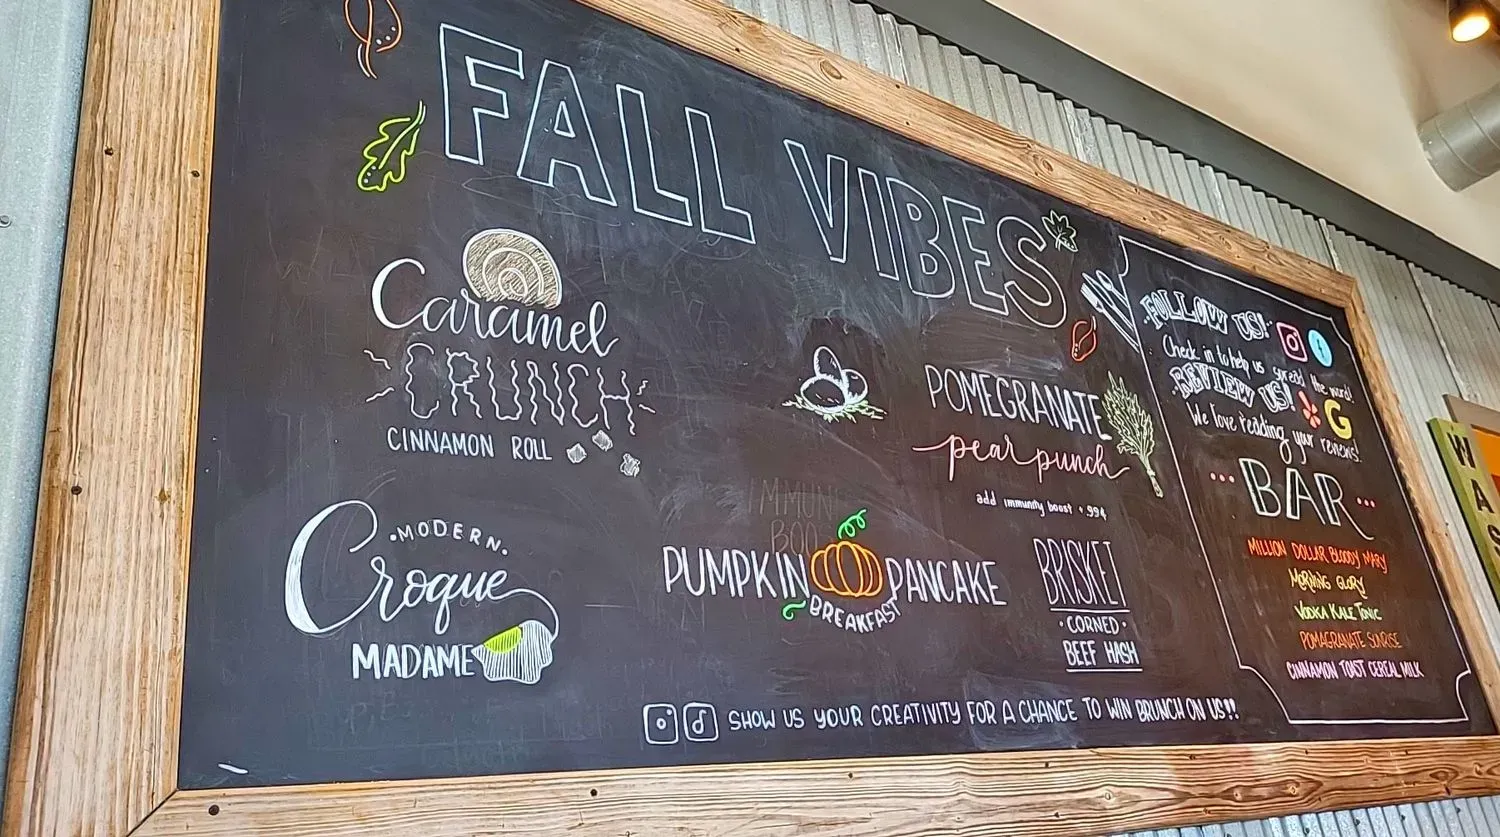 FALL VIBES
Caramel
CRUNCH
CINNAMON ROLL
·MODERN·
Croque
MADAME
IMMUNI
BOO
PUMPKIN PANCAKE
BREAKFAST
POMEGRANATE
pear punch
add immunity boost + .99¢
BRISKET
·CORNED·
BEEF HASH
SHOW US YOUR CREATIVITY FOR A CHANCE TO WIN BRUNCH ON US!!
FOLLOW US!
Check in to help us spread the word!
REVIEW US! G
We love reading your reviews!
...BAR...
MILLION DOLLAR BLOODY MARY
MORNING GLORY
VODKA KALE TONIC
POMAGRANATE SUNRISE
CINNAMON TOAST CEREAL MILK
WAS